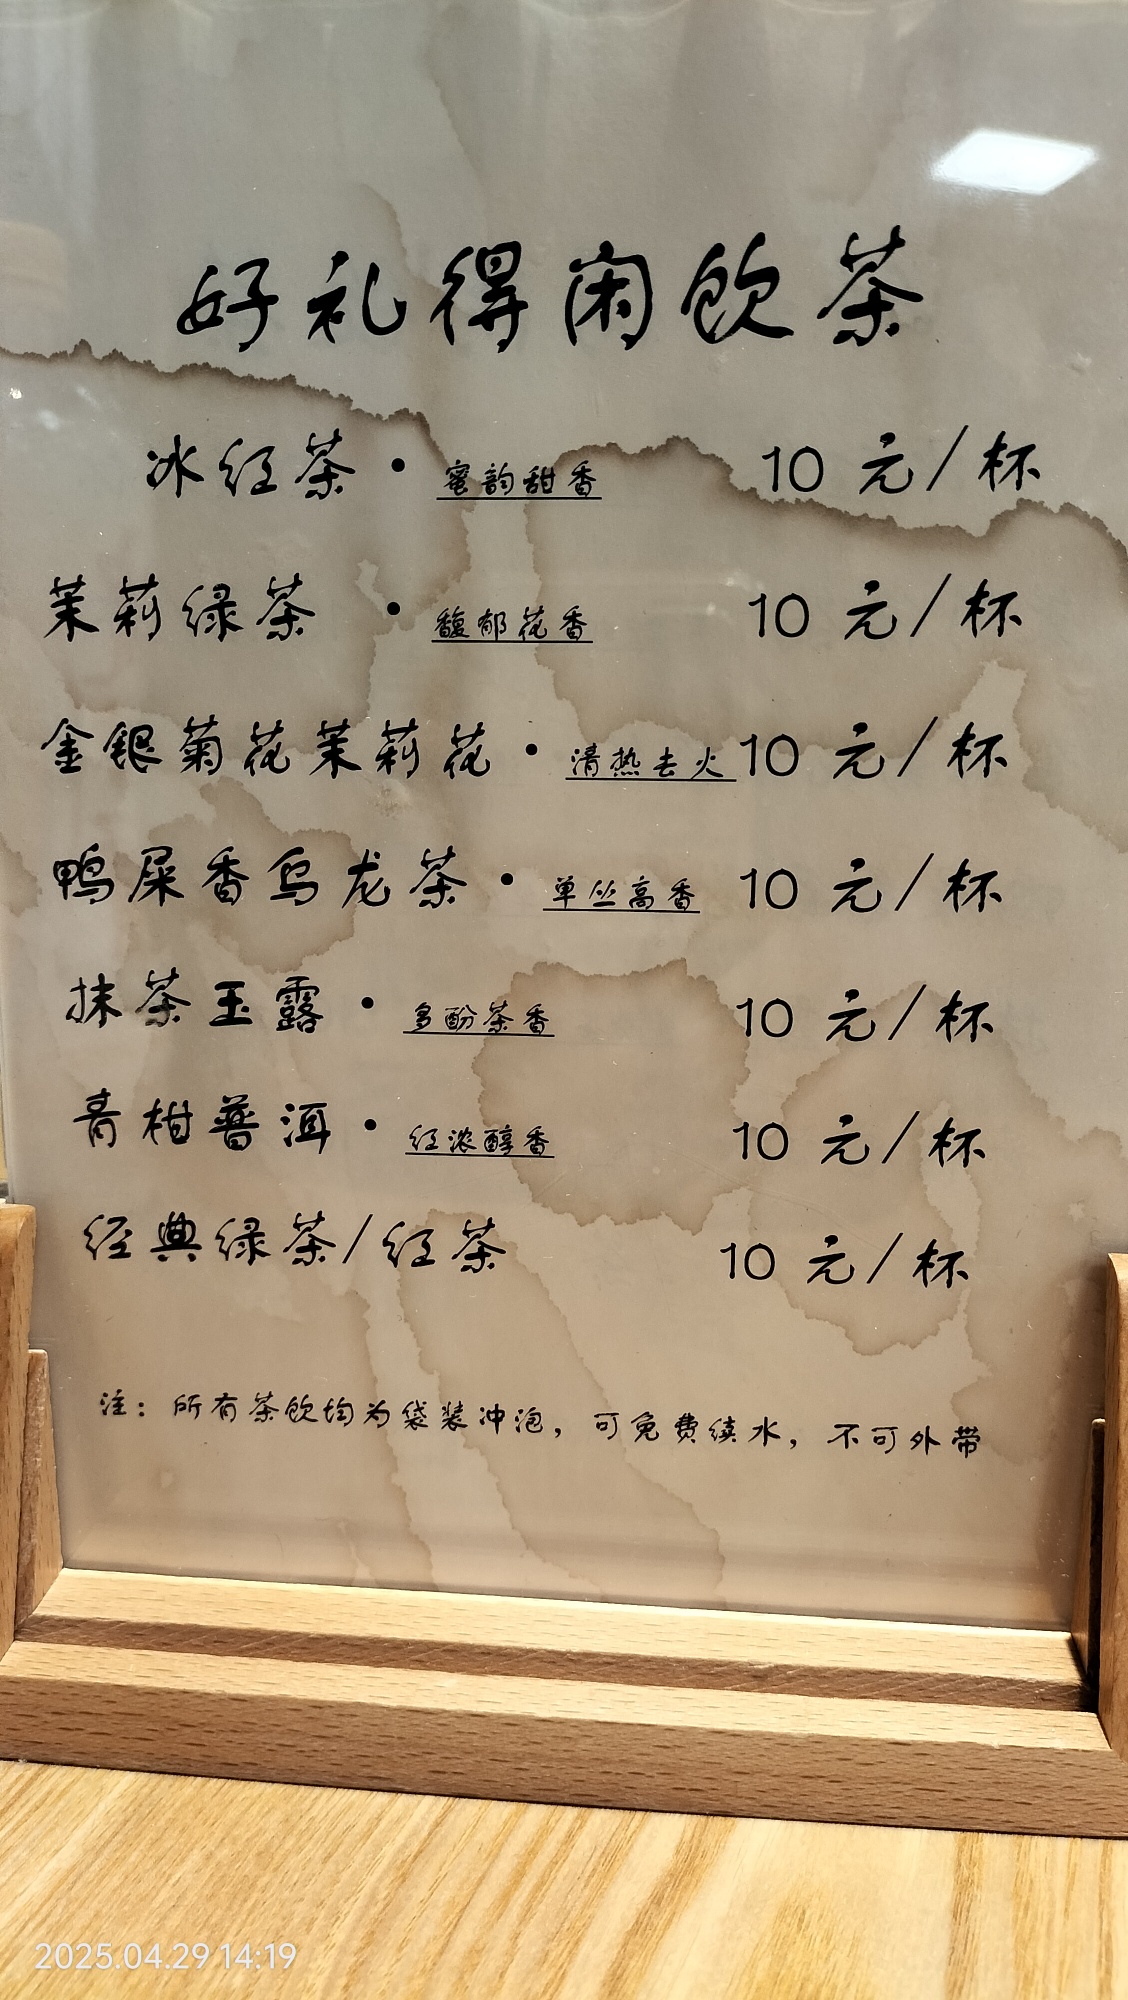 好礼得闲饮茶
冰红茶·蜜韵甜香 10 元/杯
茉莉绿茶 ·馥郁花香 10 元/杯
金银菊花茉莉花·清热去火10 元/杯
鸭屎香乌龙茶·单丛高香 10 元/杯
抹茶玉露·多酚茶香 10 元/杯
青柑普洱·红浓醇香 10 元/杯
经典绿茶/红茶 10 元/杯
注：所有茶饮均为袋装冲泡，可免费续水，不可外带
2025.04.29 14:19